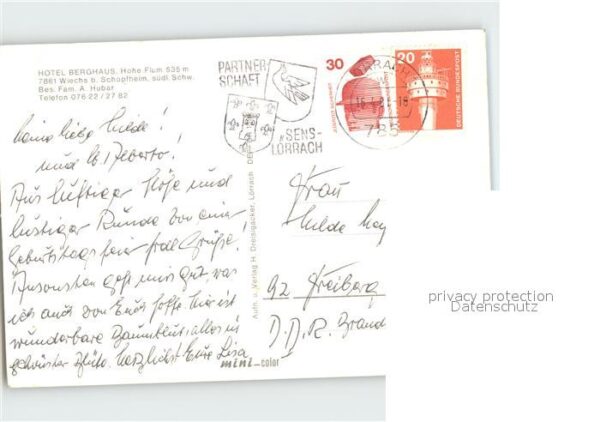 HOTEL BERGHAUS, Hohe Flum 535 m
7861 Wiechs b. Schopfheim, südl. Schw.
Bes. Fam. A. Hubar
Telefon 076 22 / 27 82
PARTNER-
SCHAFT
SENS-
LÖRRACH
30
20
DEUTSCHE BUNDESPOST
785
Meine liebe Hilde!
und
Aus luftiger Höhe und
lustiger Runde von einer
Geburtstagsfeier frohe Grüße!
Ansonsten geht mir's gut, was
ich auch von Euch hoffe. Hier ist
wunderbare Baumblust, alles in
schönster Blüte. Herzlichst Eure Lisa
Aufn. u. Verlag H. Dreisigacker, Lörrach
mini-color
Frau
Hilde May
92 Freiberg
D.D.R. Brand
privacy protection
Datenschutz